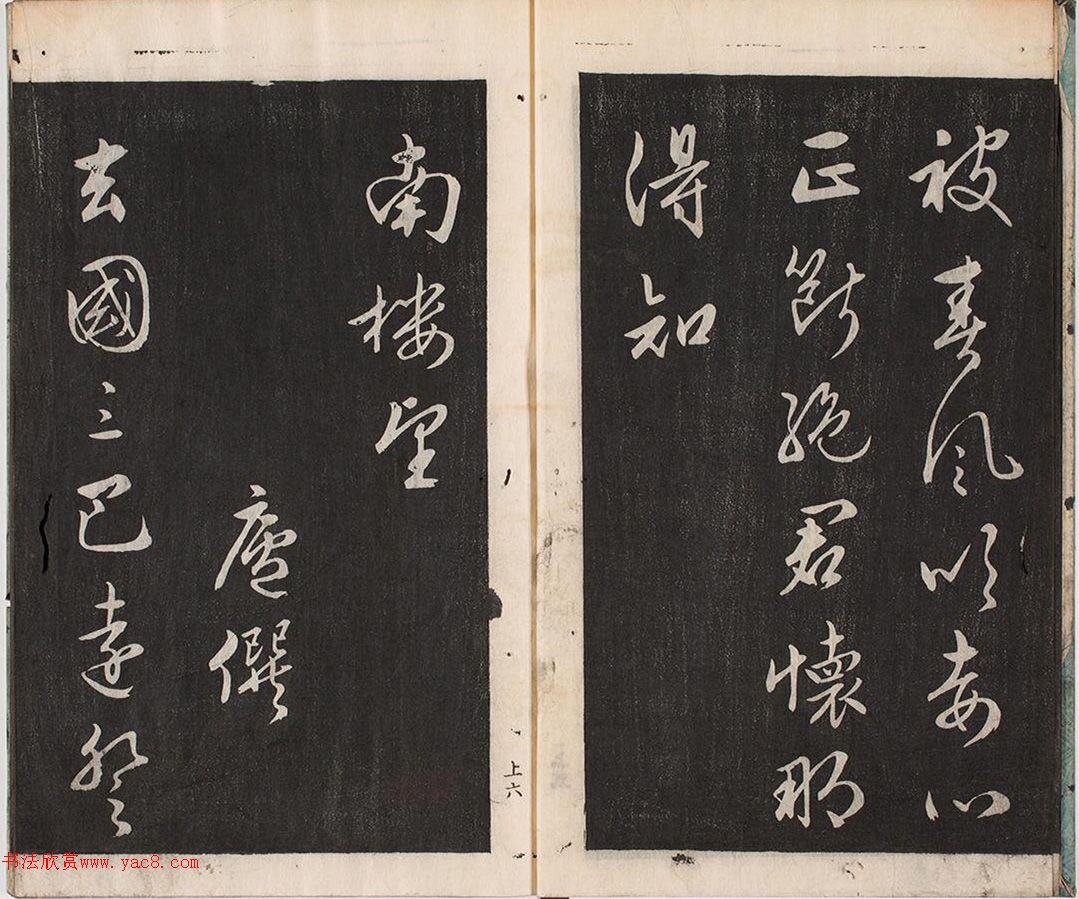 被春風吹妾心
正斷絕君懷那
得知
南樓望
盧僎
去國三巴遠登
上六
书法欣赏www.yac8.com